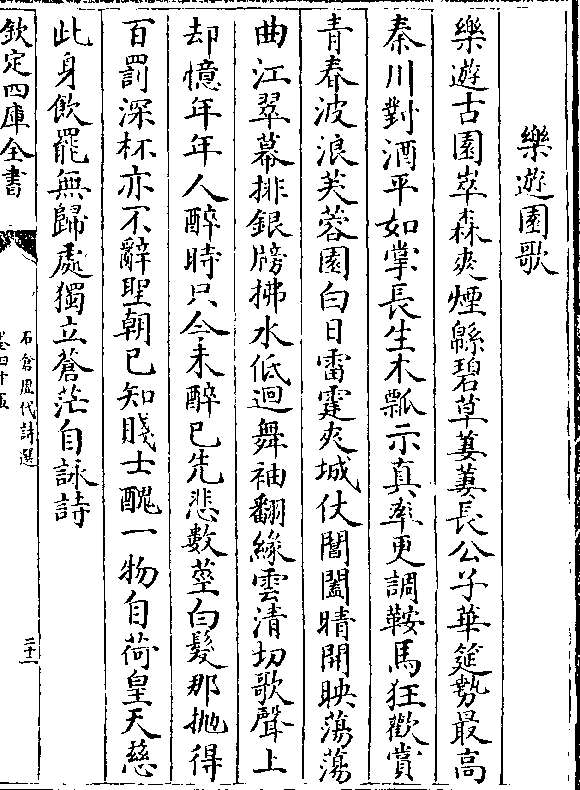 樂遊園歌
樂遊古園崒森爽煙緜碧草萋萋長公子華筵勢最高
秦川對酒平如掌長生木瓢示真率更調鞍馬狂歡賞
青春波浪芙蓉園白日雷霆夾城仗閶闔晴開昳蕩蕩
曲江翠幕排銀牓拂水低迴舞袖翻緣雲清切歌聲上
却憶年年人醉時只今未醉已先悲數莖白髮那抛得
百罰深杯亦不辭聖朝已知賤士醜一物自荷皇天慈
此身飲罷無歸處獨立蒼茫自詠詩
欽定四庫全書
石倉歷代詩選
卷四十五
二十一